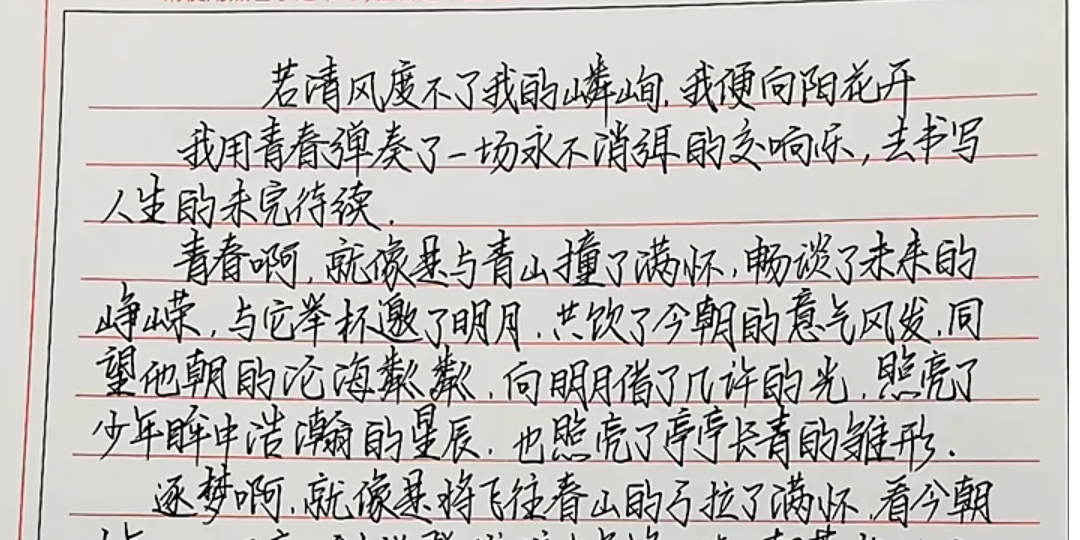 若清风度不了我的嶙峋,我便向阳花开
我用青春弹奏了一场永不消弭的交响乐,去书写
人生的未完待续.
青春啊,就像是与青山撞了满怀,畅谈了未来的
峥嵘,与它举杯邀了明月,共饮了今朝的意气风发,同
望他朝的沧海粼粼,向明月借了几许的光,照亮了
少年眸中浩瀚的星辰,也照亮了亭亭长青的雏形.
逐梦啊,就像是将飞往春山的弓拉了满怀,看今朝